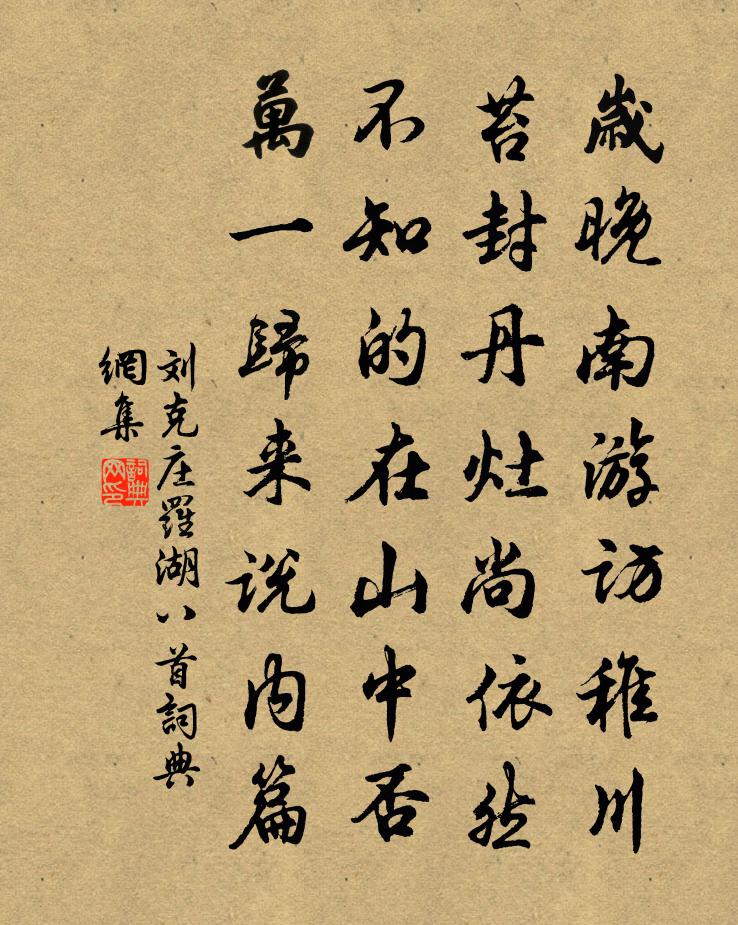 歲晚南游访稚川
苔封丹灶尚依然
不知的在山中否
萬一歸来说内篇
刘克庄羅湖八首詞典
網集
詞典
网印